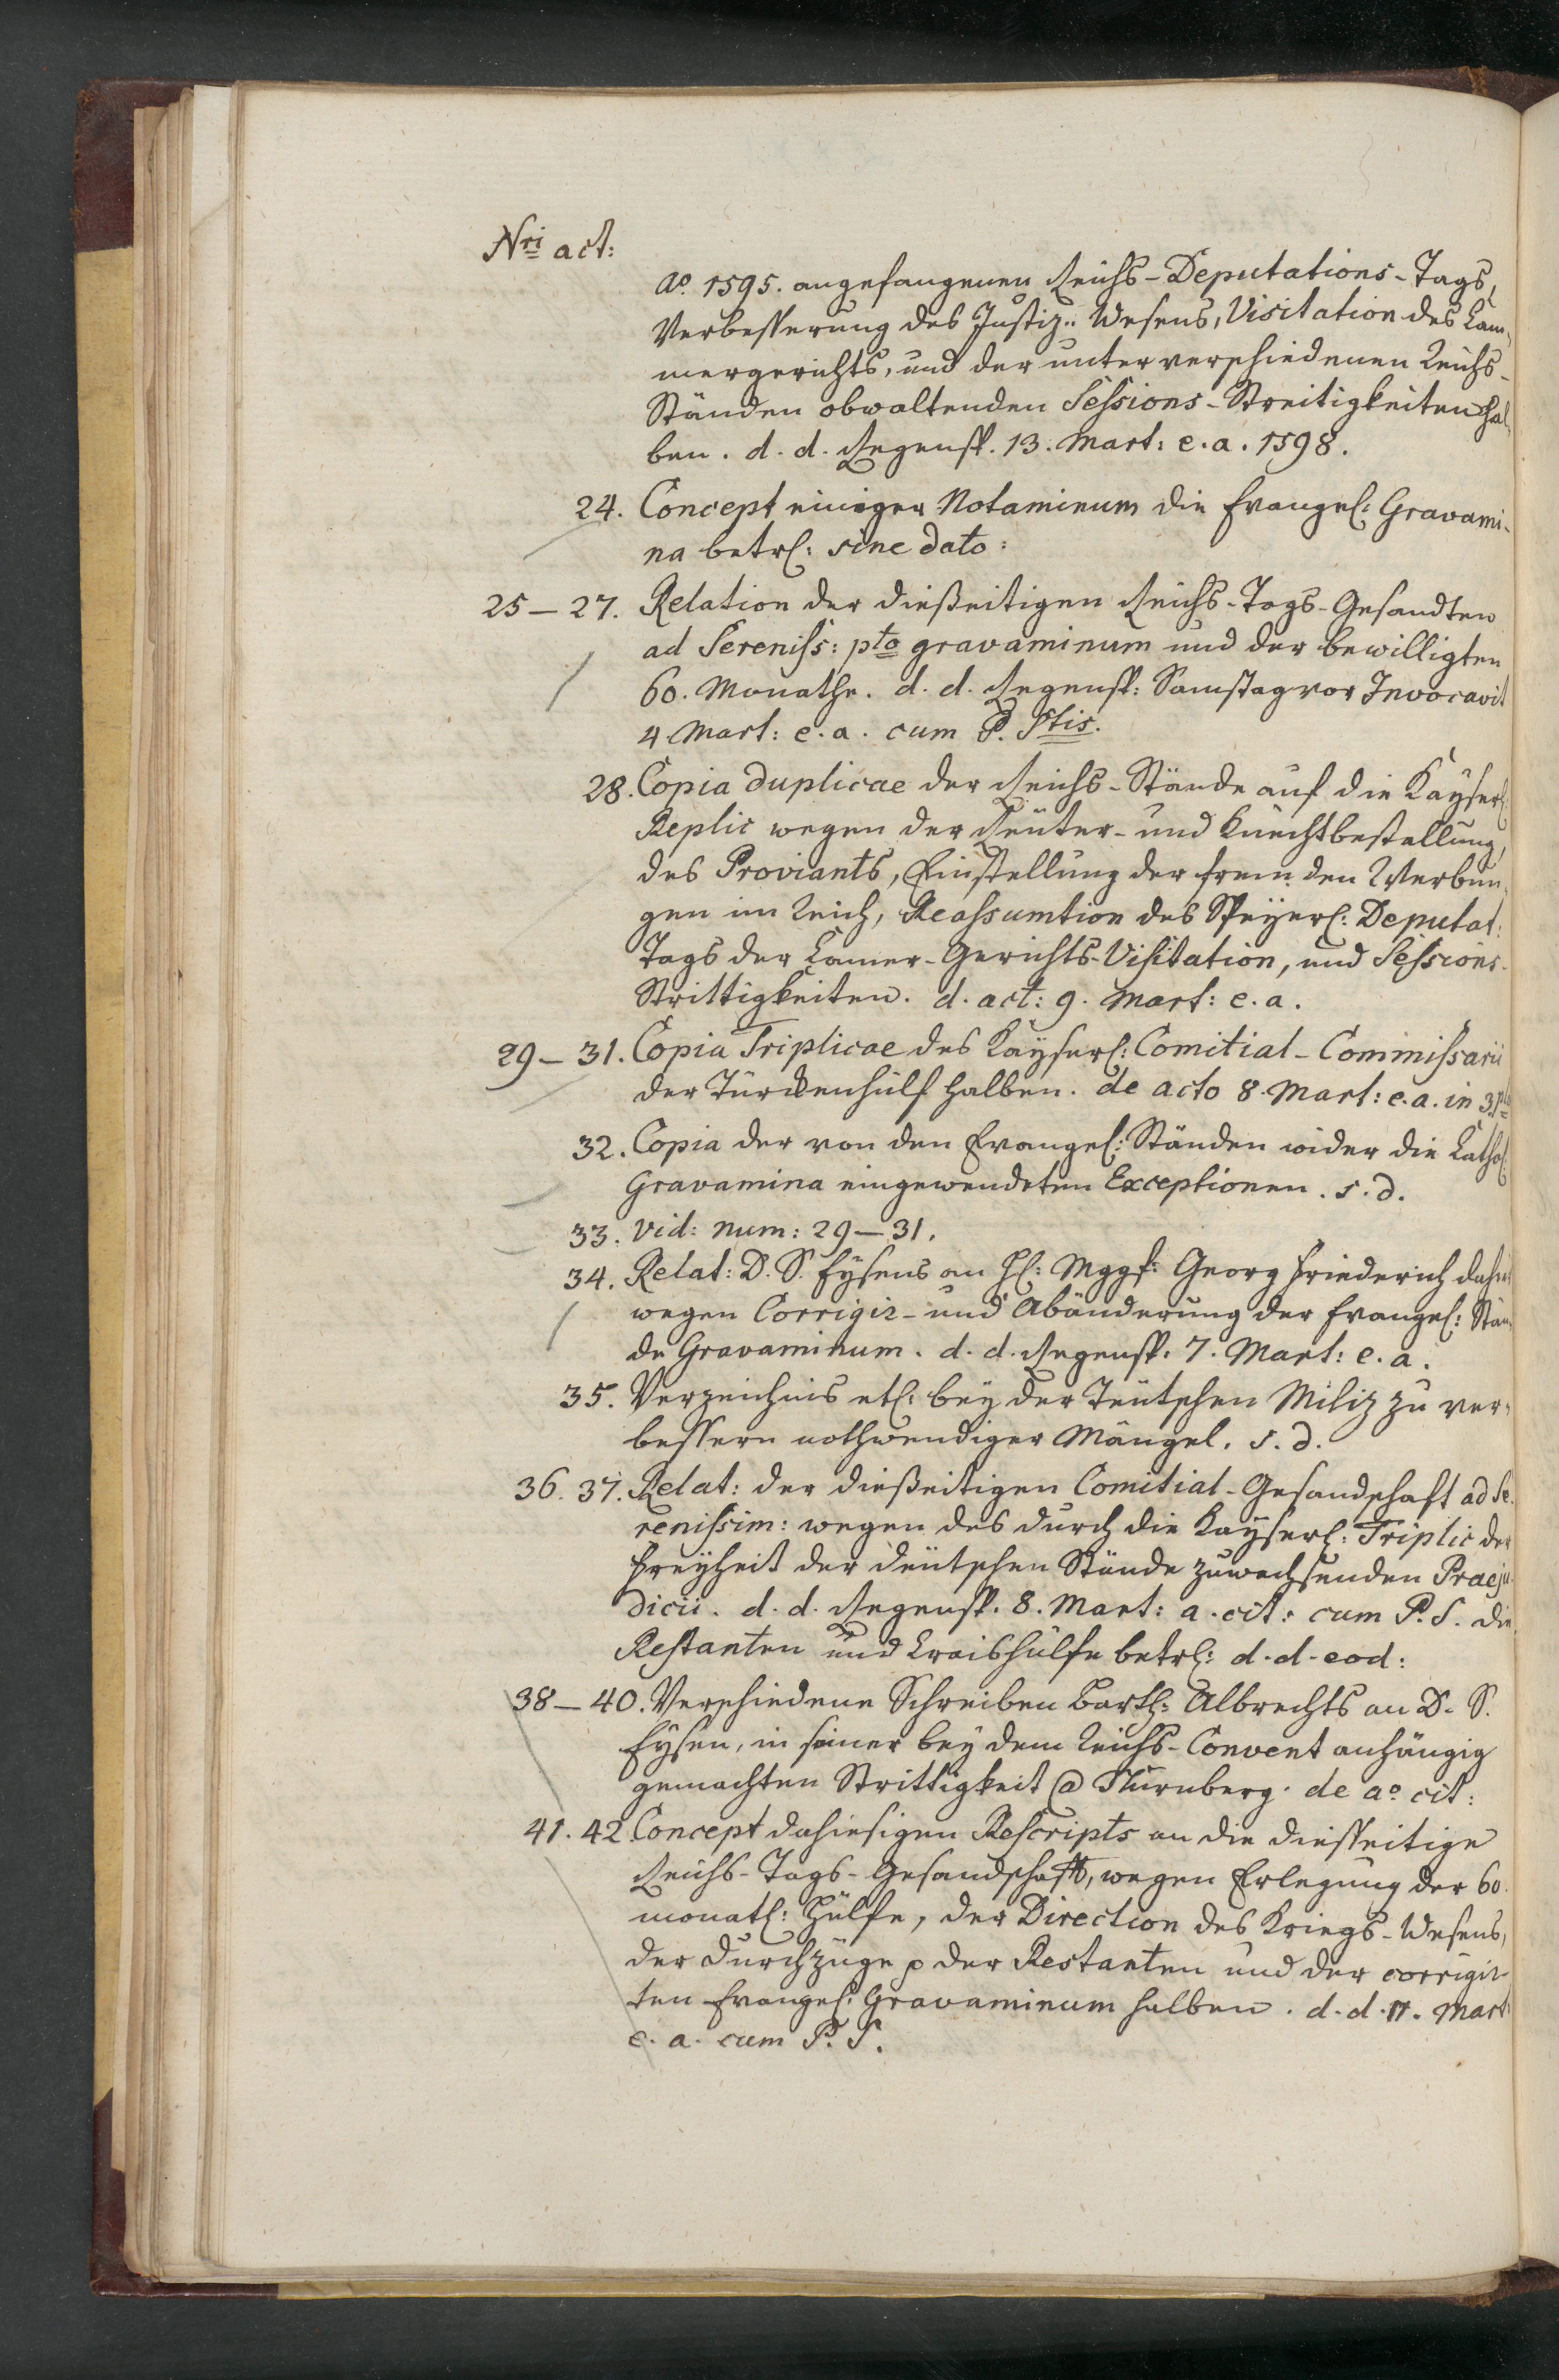 Nri act:
ao. 1595. angefangenen Reichs-Deputations-Tags,
Verbesserung des Justiz-Wesens, Visitation des Cam-
mergerichts, und der unter verschiedenen Reichs-
Ständen obwaltenden Sessions-Streitigkeiten hal-
ben. d. d. Regensp. 13. Mart: e. a. 1598.
24. Concept einiger Notaminum die Evangel: Gravami-
na betrl: sine dato:
25–27. Relation der dießeitigen Reichs-Tags-Gesandten
ad Sereniss: pto gravaminum und der bewilligten
60. Monathe. d. d. Regensp: Samstag vor Invocavit
4 Mart: e. a. cum P. Stis.
28. Copia duplicae der Reichs-Stände auf die Kayserl:
Replic wegen der Reuter- und Knechtbestellung,
des Proviants, Einstellung der fremden Werbun-
gen im Reich, Reassumtion des Speyerl: Deputat:
Tags der Camer-Gerichts-Visitation, und Sessions-
Strittigkeiten. d. act: 9. Mart: e. a.
29–31. Copia Triplicae des Kayserl: Comitial-Commissarii
der Türckenhülf halben. de acto 8. Mart: e. a. in 3.plo
32. Copia der von den Evangel: Ständen wider die Cathol:
Gravamina eingewendeten Exceptionen. s. d.
33. vid: num: 29–31.
34. Relat: D. S. Eysens an H: Mggf: Georg Friederich dahier
wegen Corrigir- und Abänderung der Evangel: Stän-
de Gravaminum. d. d. Regensp. 7. Mart: e. a.
35. Verzeichnis etl: bey der Teutschen Miliz zu ver-
bessern nothwendiger Mängel. s. d.
36. 37. Relat: der dießeitigen Comitial-Gesandschaft ad Se-
renissim: wegen des durch die Kayserl: Triplic der
Freyheit der deutschen Stände zuwachsenden Praeju-
dicii. d. d. Regensp. 8. Mart: a. cit: cum P. S. die
Restanten und Craishülfe betrl: d. d. eod:
38–40. Verschiedene Schreiben Barth: Albrechts an D. S.
Eysen, in seiner bey dem Reichs-Convent anhängig
gemachten Strittigkeit @ Nürnberg. de ao. cit:
41. 42 Concept dahiesigen Rescripts an die diesseitige
Reichs-Tags-Gesandschaft, wegen Erlegung der 60.
monatl: Hülfe, der Direction des Kriegs-Wesens,
der Durchzüge p der Restanten und der corrigir-
ten Evangel: Gravaminum halben. d. d. 11. Mart:
e. a. cum P. S.